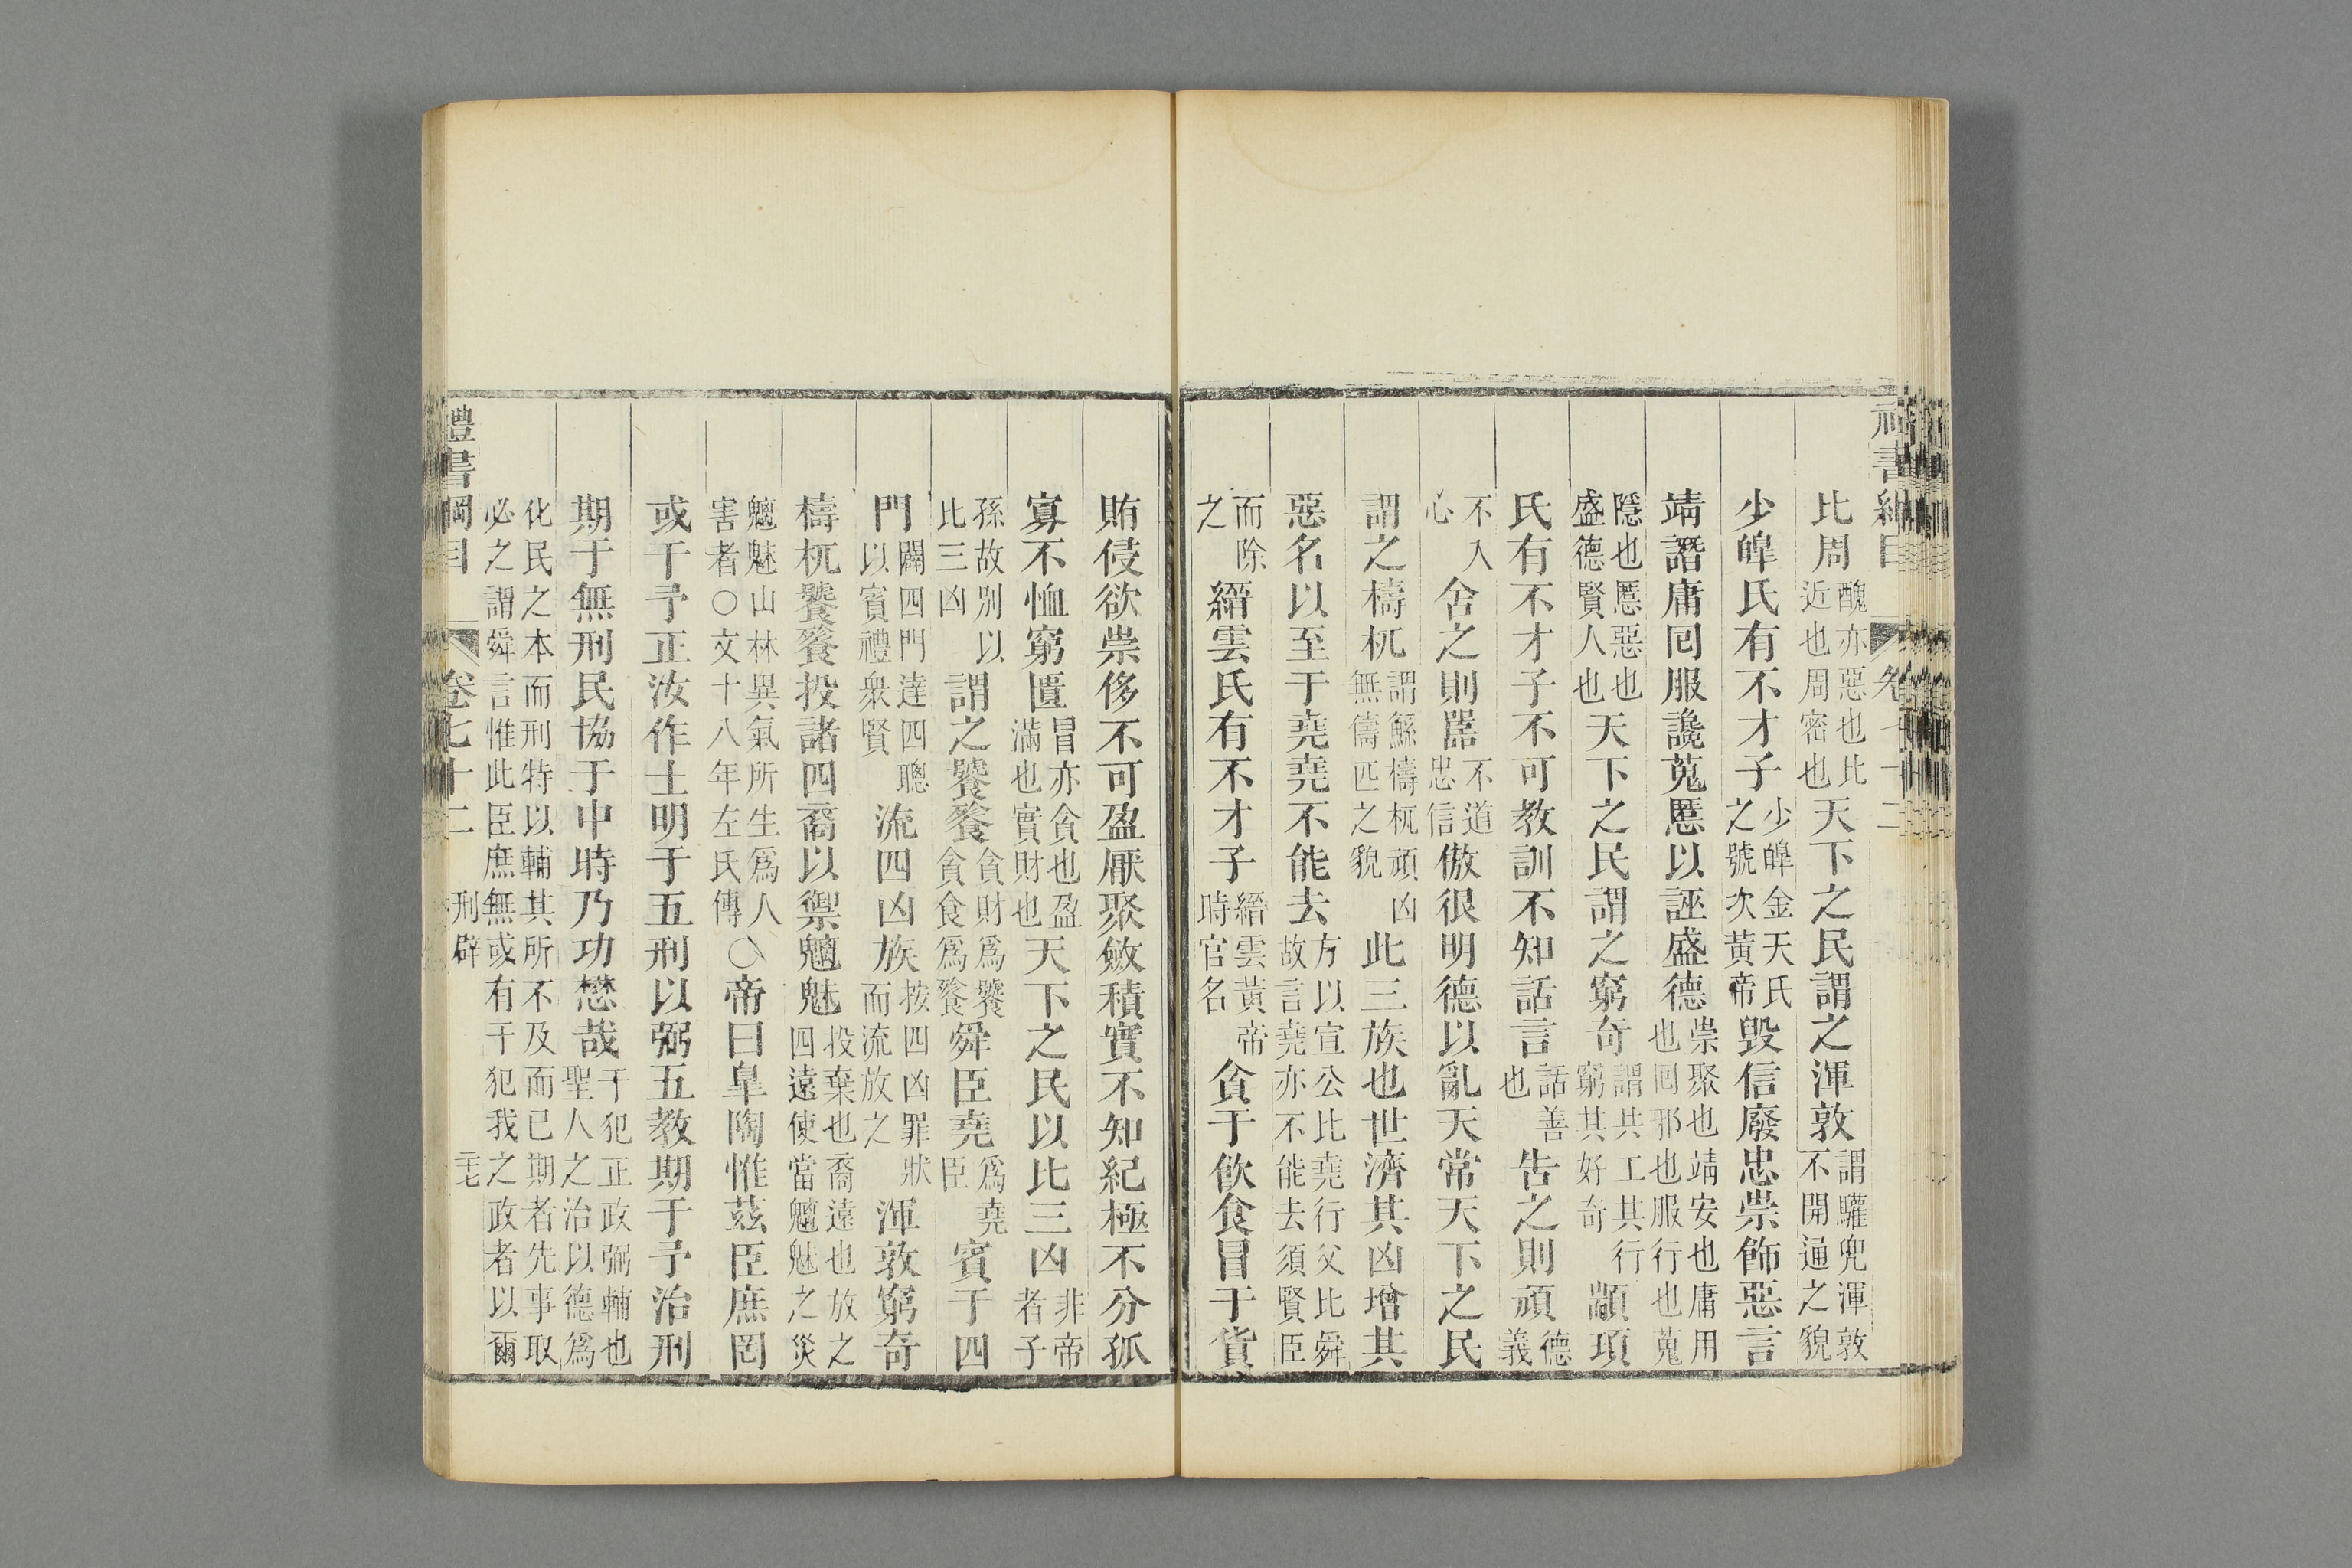 比周醜亦惡也比近也周密也天下之民謂之渾敦謂驩兜渾敦不開通之貌
少皥氏有不才子少皥金天氏之號次黃帝毁信廢忠崇飾惡言
靖譖庸囘服讒蒐慝以誣盛德崇聚也靖安也庸用也囘邪也服行也蒐
隱也慝惡也盛德賢人也天下之民謂之窮奇謂共工其行窮其好奇顓頊
氏有不才子不可教訓不知話言話善也告之則頑德義
不入心舍之則嚚不道忠信傲很明德以亂天常天下之民
謂之檮杌謂鯀檮杌頑凶無儔匹之貌此三族也世濟其凶增其
惡名以至于堯堯不能去方以宣公比堯行父比舜故言堯亦不能去須賢臣
而除之縉雲氏有不才子縉雲黃帝時官名貪于飲食冒于貨
賄侵欲崇侈不可盈厭聚斂積實不知紀極不分孤
寡不恤窮匱冒亦貪也盈滿也實財也天下之民以比三凶非帝者子
孫故別以比三凶謂之饕餮貪財爲饕貪食爲餮舜臣堯爲堯臣賓于四
門闢四門達四聰以賓禮衆賢流四凶族按四凶罪狀而流放之渾敦窮奇
檮杌饕餮投諸四裔以禦魑魅投棄也裔遠也放之四遠使當魑魅之災
魑魅山林異氣所生爲人害者○文十八年左氏傳○帝曰皐陶惟茲臣庶罔
或干予正汝作士明于五刑以弼五教期于予治刑
期于無刑民協于中時乃功懋哉干犯正政弼輔也聖人之治以德爲
化民之本而刑特以輔其所不及而已期者先事取必之謂舜言惟此臣庶無或有干犯我之政者以爾
禮書綱目 卷七十二 刑辟